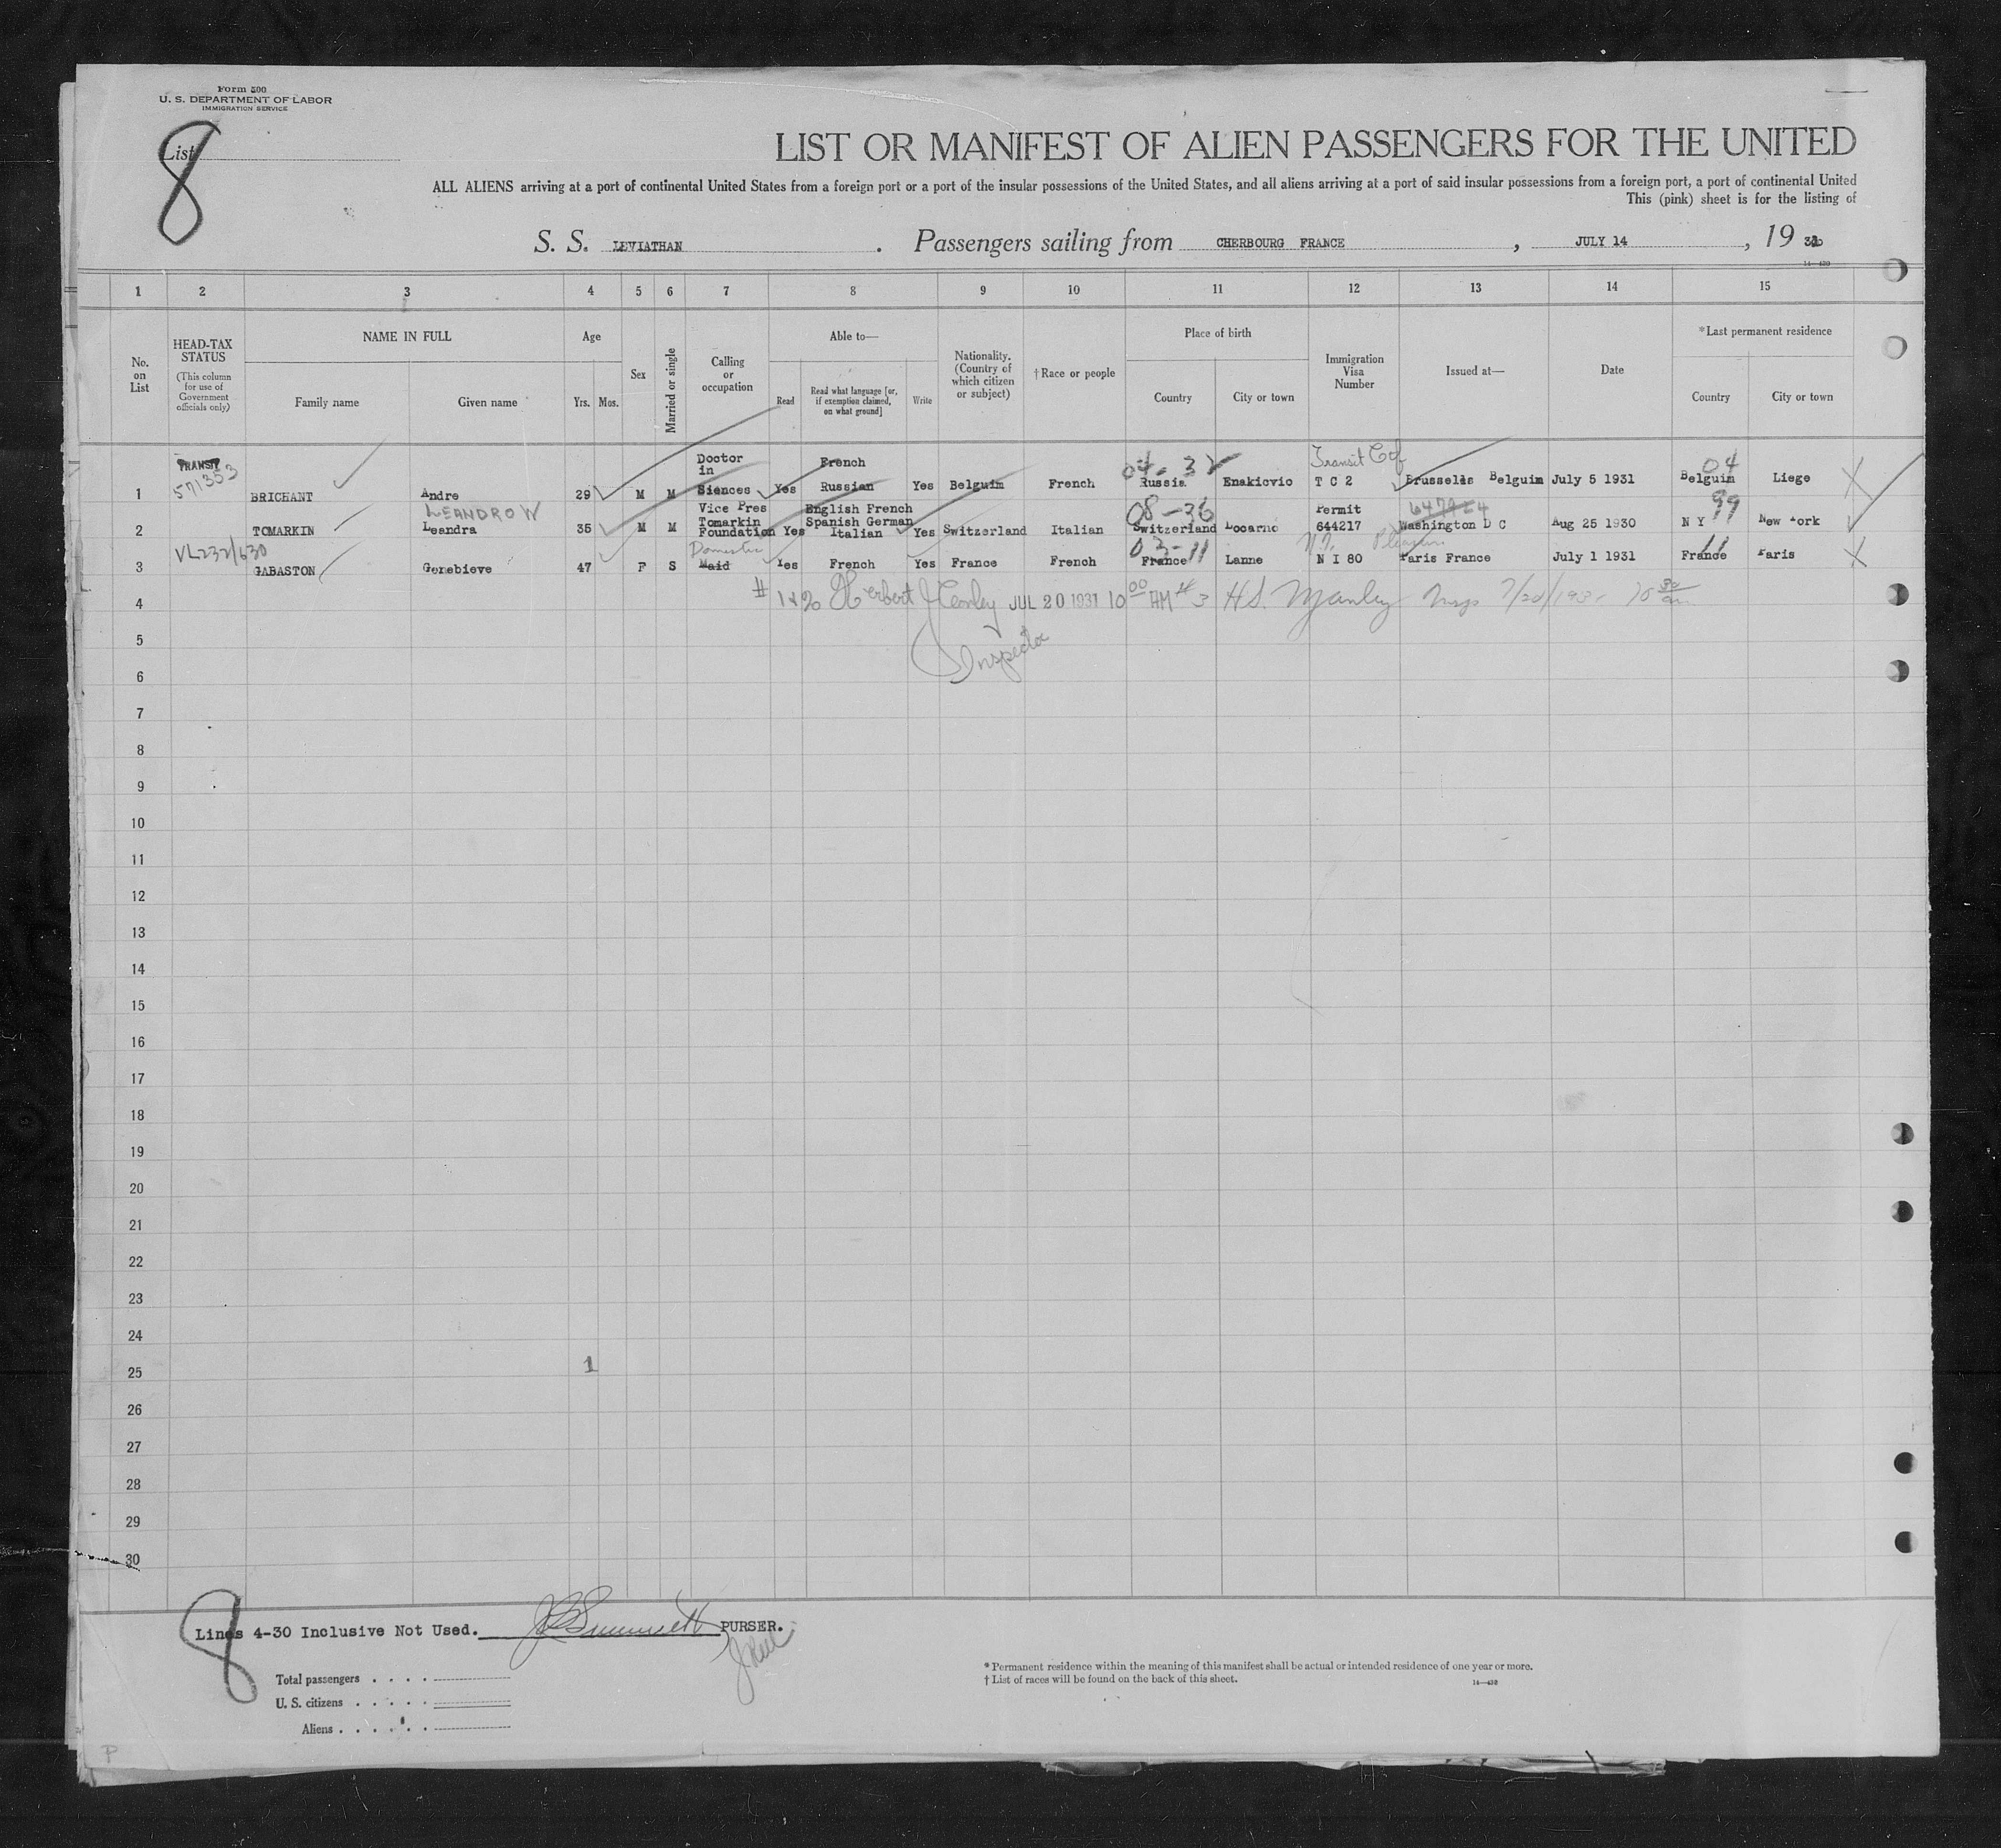 Form 500
U. S. DEPARTMENT OF LABOR
IMMIGRATION SERVICE
List 8
LIST OR MANIFEST OF ALIEN PASSENGERS FOR THE UNITED
ALL ALIENS arriving at a port of continental United States from a foreign port or a port of the insular possessions of the United States, and all aliens arriving at a port of said insular possessions from a foreign port, a port of continental United
This (pink) sheet is for the listing of
S. S. LEVIATHAN . Passengers sailing from CHERBOURG FRANCE , JULY 14 , 19 31
14—430
1 2 3 4 5 6 7 8 9 10 11 12 13 14 15
No. on List
HEAD-TAX STATUS (This column for use of Government officials only)
NAME IN FULL
Family name Given name
Age
Yrs. Mos.
Sex
Married or single
Calling or occupation
Able to—
Read
Read what language [or, if exemption claimed, on what ground]
Write
Nationality. (Country of which citizen or subject)
†Race or people
Place of birth
Country City or town
Immigration Visa Number
Issued at—
Date
*Last permanent residence
Country City or town
TRANSIT 571353
1 BRICHANT Andre 29 M M Doctor in Siences Yes French Russian Yes Belguim French 04- Russia Enakicvio Transit Cof T C 2 Brussells Belguim July 5 1931 04 Belguim Liege
LEANDRO W
2 TOMARKIN Leandra 35 M M Vice Pres Tomarkin Foundation Yes English French Spanish German Italian Yes Switzerland Italian 08-36 Switzerland Locarno Permit 644217 Washington D C Aug 25 1930 99 N Y New York
VL232/630
3 GABASTON Genebieve 47 F S Domestic Maid Yes French Yes France French 03-11 France Lanne N I 80 Pleasure Paris France July 1 1931 11 France Paris
4 # 1&2 Herbert JUL 20 1931 10 00 AM # 3 H.S. Manley Insp 7/20/1931 10 30 am
Inspector
5
6
7
8
9
10
11
12
13
14
15
16
17
18
19
20
21
22
23
24
25 1
26
27
28
29
30
8
Lines 4-30 Inclusive Not Used. PURSER.
Total passengers . . . .
U. S. citizens . . . . .
Aliens . . . . . .
*Permanent residence within the meaning of this manifest shall be actual or intended residence of one year or more.
†List of races will be found on the back of this sheet.
14—430
P